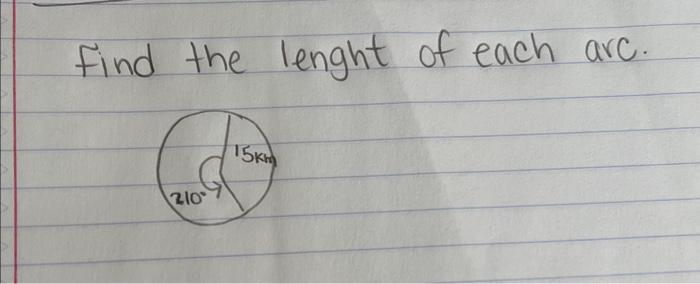 find the lenght of each arc.
15km
210°